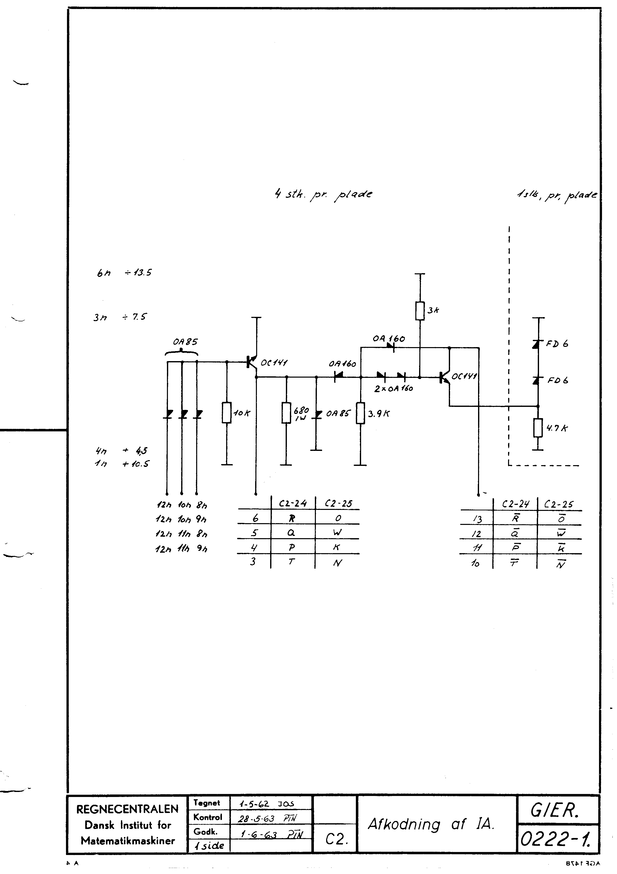 4 stk. pr. plade
1 stk. pr. plade
6n ÷ 13.5
3n ÷ 7.5
3k
OA85
OA160
FD6
OC141
OA160
OC141
FD6
2xOA160
10K
680
1W
OA85
3.9K
4.7K
4n + 4,5
1n + 10.5
12n 10n 8n
12n 10n 9n
12n 11n 8n
12n 11n 9n
C2-24 C2-25
6 R O
5 Q W
4 P K
3 T N
C2-24 C2-25
13 R̅ O̅
12 Q̅ W̅
11 P̅ K̅
10 T̅ N̅
REGNECENTRALEN
Dansk Institut for
Matematikmaskiner
Tegnet 1-5-62 JOS
Kontrol 28-5-63 PTN
Godk. 1-6-63 PTN
1 side
C2.
Afkodning af IA.
GIER.
0222-1.
A 4
AGF 1478